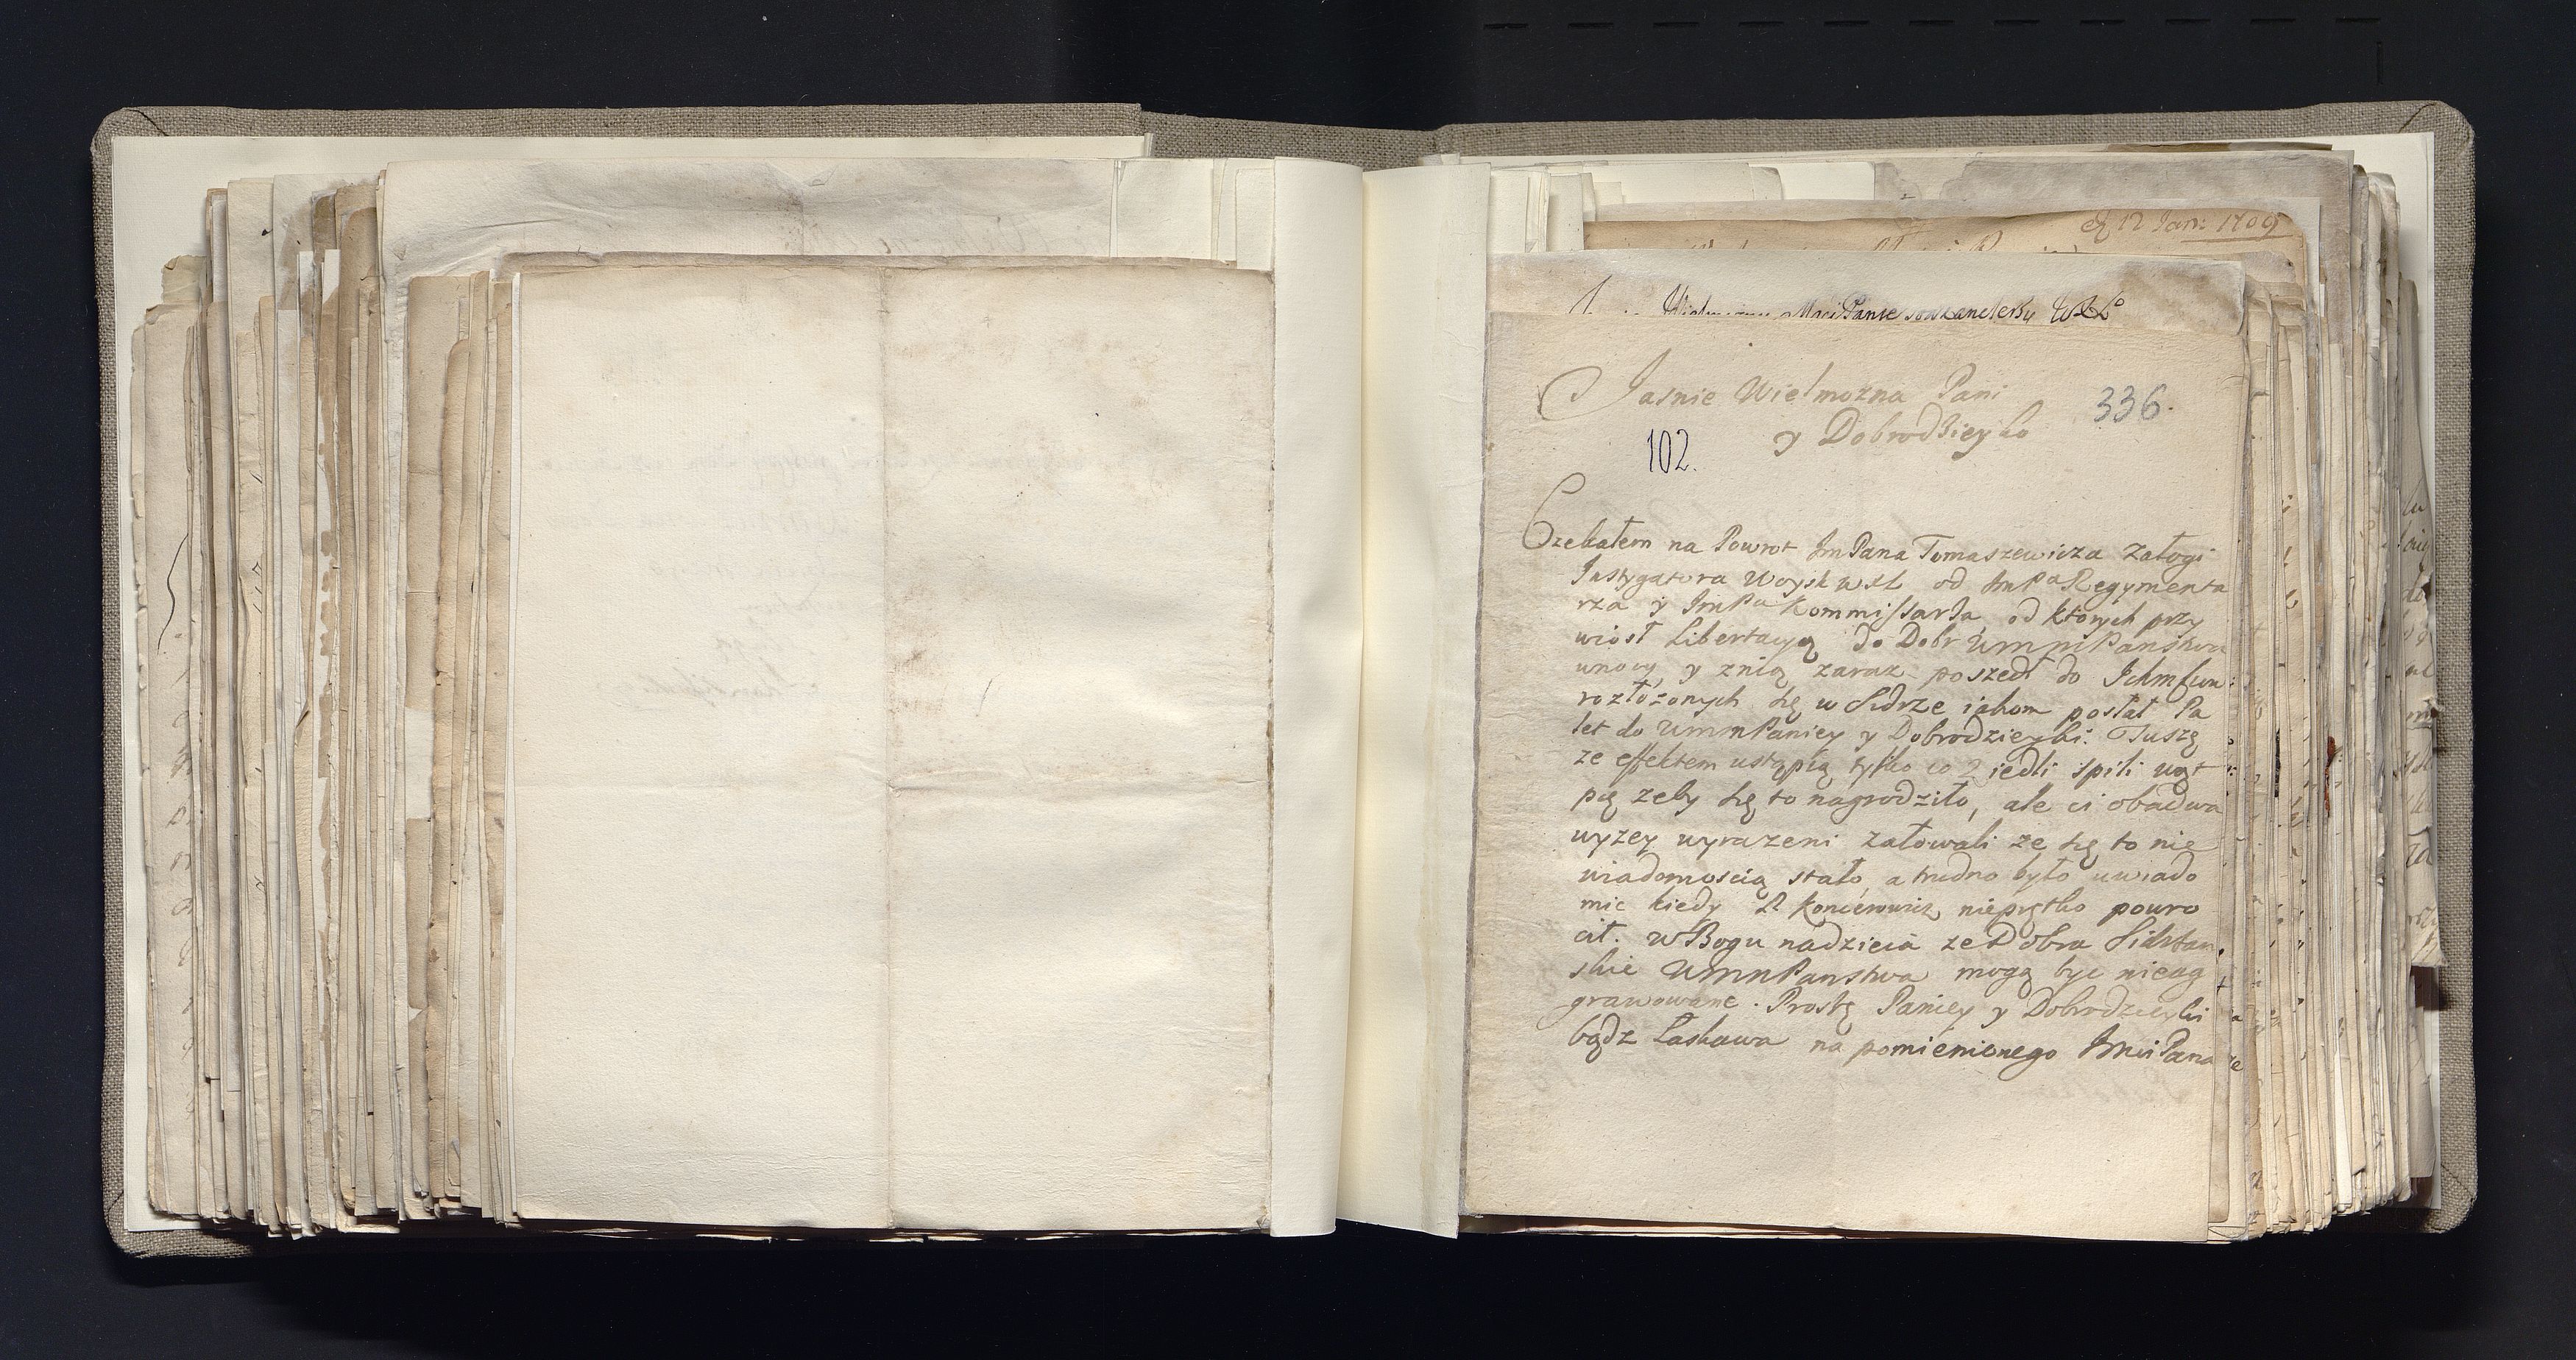 12 Jan: 1709
Wielmozny Mosci Panie Podkanclerzy WXL
Jasnie Wielmozna Pani
336.
y Dobrodzieyko
102.
Czekałem na Powrot Jm Pana Tomaszewicza załogi
Instygatora Woysk WXL od Jmpa Regymenta
rza y Jmpa Kommissarza od ktorych przy
wiosł Libertacyą do Dobr WmmPanstwa
wnocy, y znią zaraz poszedł do Ichm
rozłożonych się w Sidrze iakom posłał Pa
let do WmmPaniey y Dobrodzieyki. Tuszę
ze effektem ustąpią tylko co iedli spili wąt
pię zeby się to nagrodziło, ale ci obadwa
wyzey wyrazeni załowali ze się to nie
wiadomoscią stało, a trudno było uwiado
mic kiedy P niprętko powro
cił. w Bogu nadzieia ze Dobra
skie WmmPanstwa mogą byc nieag
grawowane. Proszę Paniey y Dobrodzieyki
bądz Łaskawa na pomienionego Jmci Pana